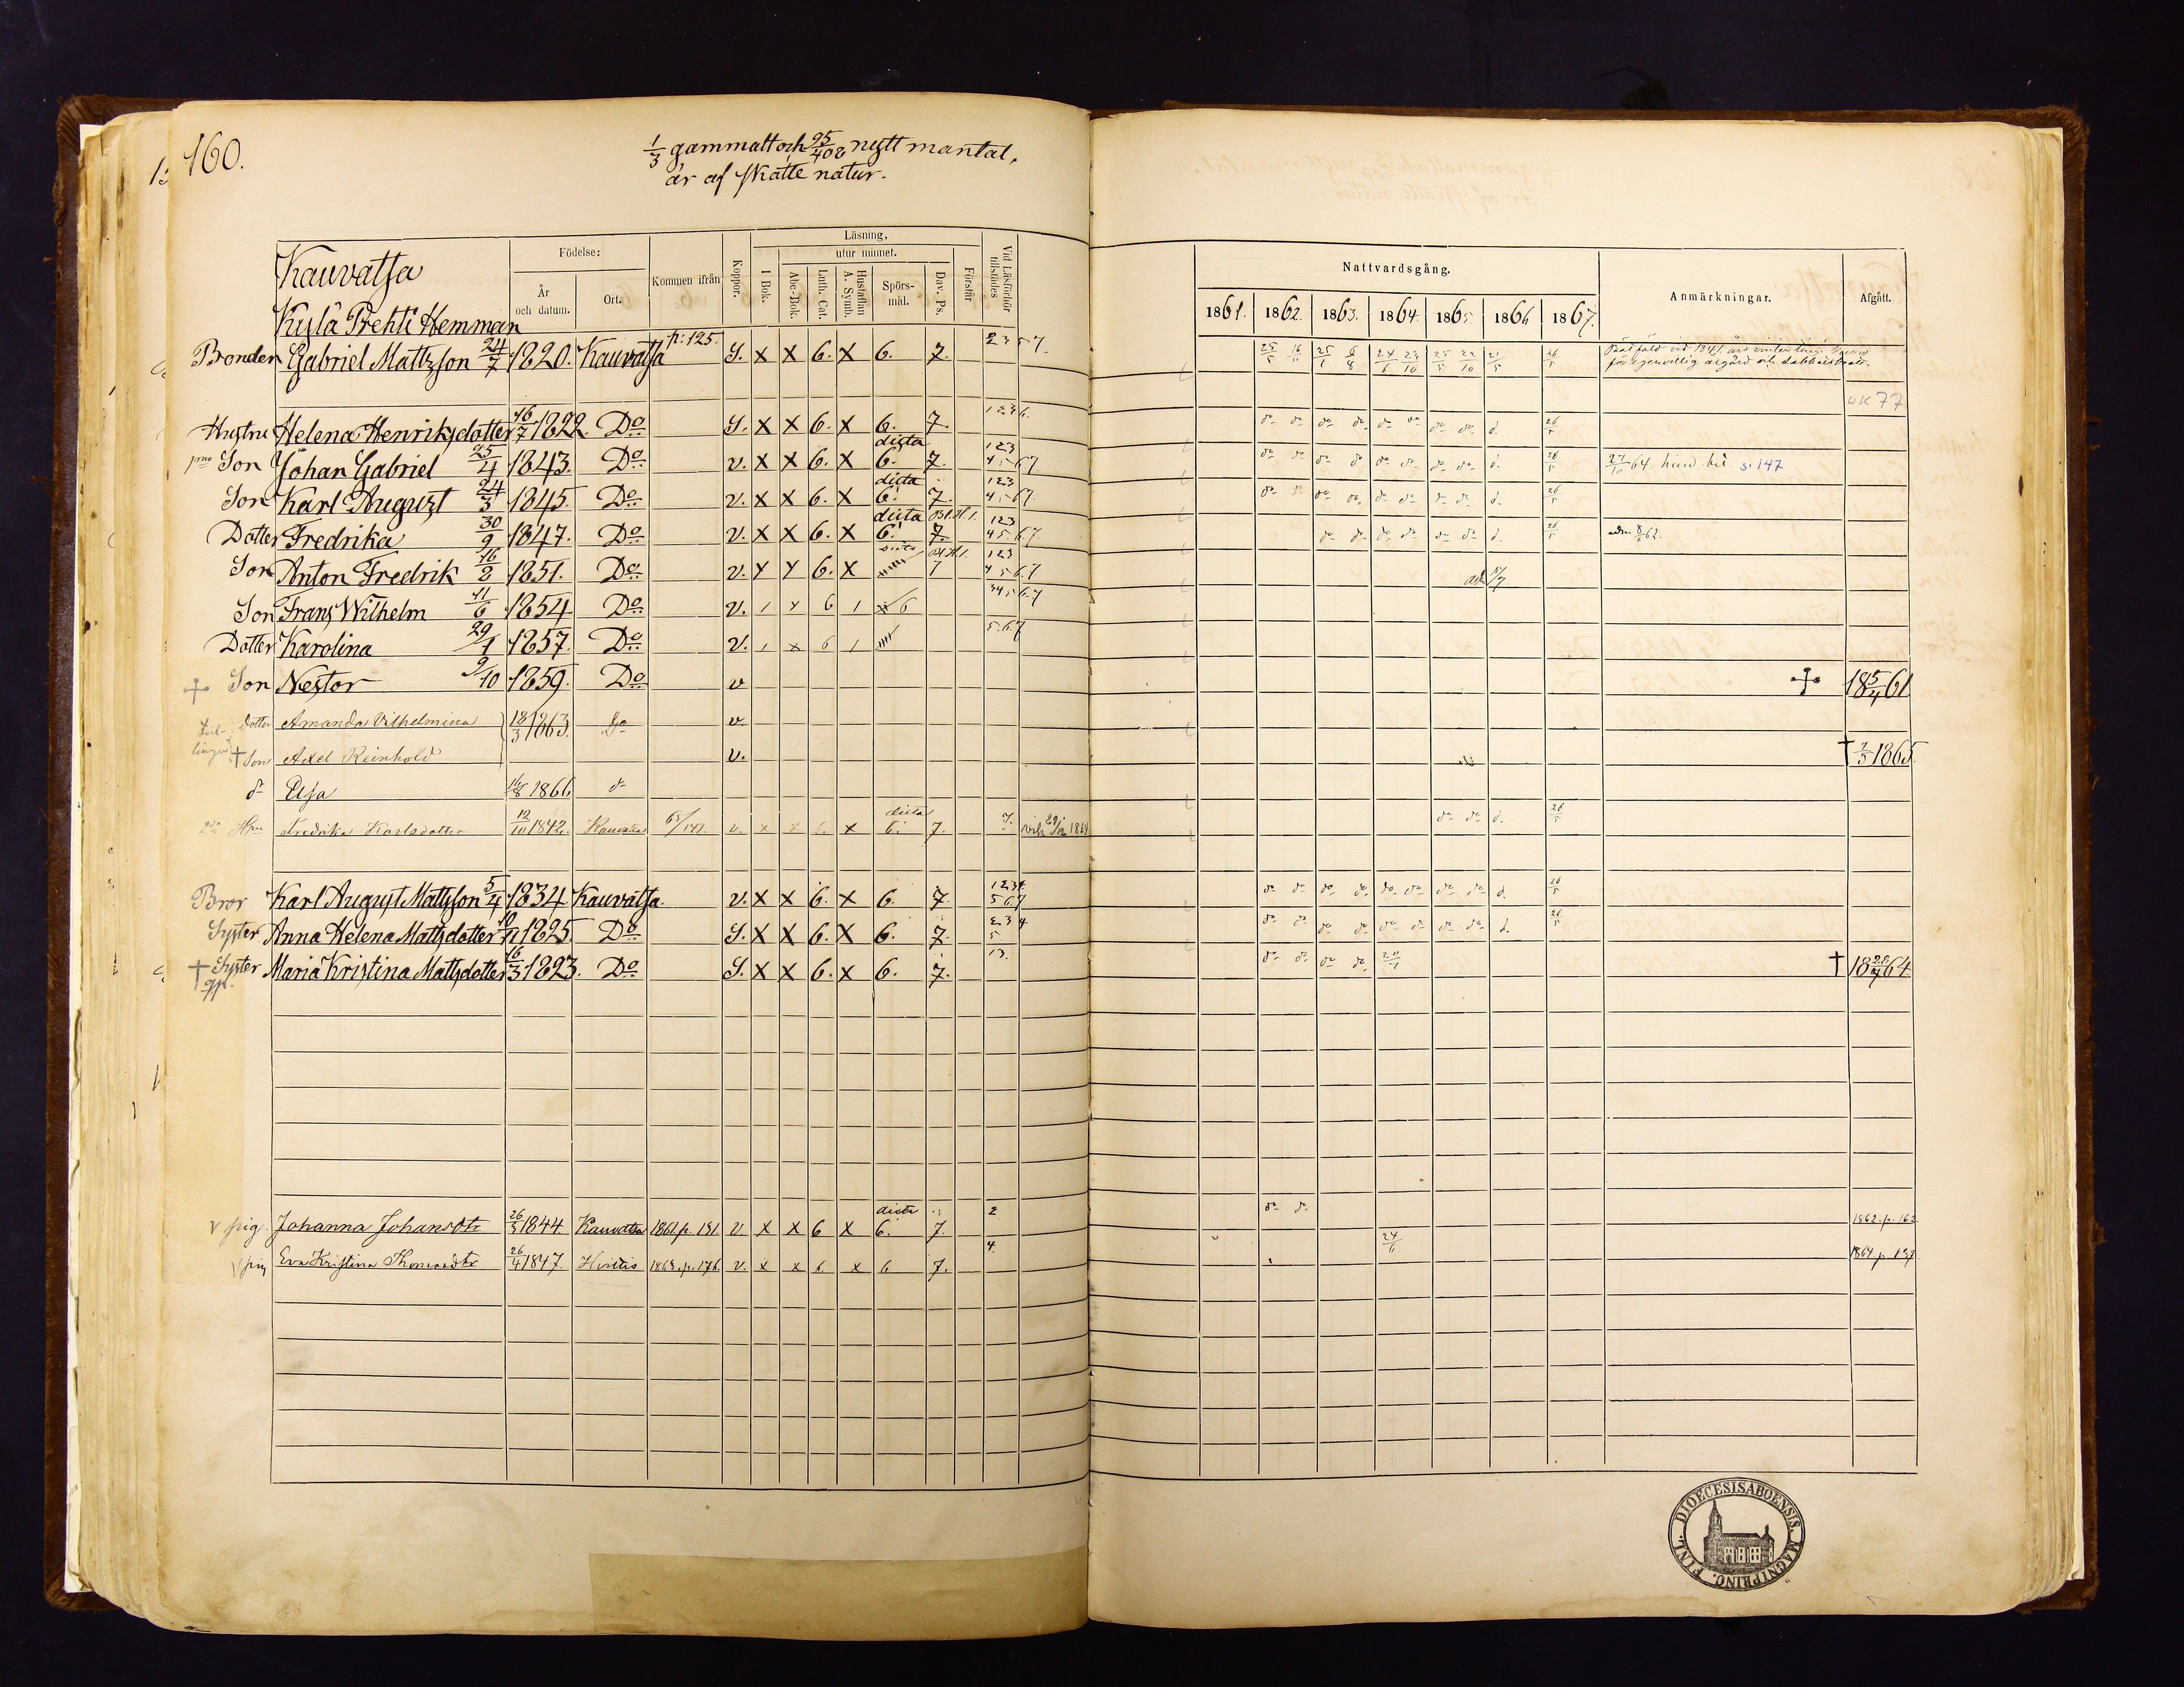 160.
1/3 gammalt och 95/408 nytt mantal,
är af skatte natur.
Kauvatsa
Kylä Prehti Hemman
Födelse:
År och datum.
Ort.
Kommen ifrån
Koppor.
Läsning,
utur minnet.
I Bok.
Abc-Bok.
Luth. Cat.
Hustaflan A. Symb.
Spörs-mål.
Dav. Ps.
Förstår
Vid Läsförhör tillstädes
Nattvardsgång.
1861. 1862. 1863. 1864. 1865. 1866 1867.
Anmärkningar.
Afgått.
Bonden Gabriel Mattsson 24/7 1820. Kauvatsa p: 125. S. x x 6. x 6. 7. 2 3 5 7. 25/5 26/5
UK 77
Hustru Helena Henriksdotter 16/7 1822. Do S. x x 6. x 6. 7. 1 2 3 6. do do do do do do do do d. 26/5
pmo Son Johan Gabriel 25/4 1843. Do v. x x 6. x dicta 6. 7. 123 4 5 67. do do do do do do do do d. 26/5 27/10 64. s. 147
Son Karl August 24/3 1845. Do v. x x 6. x dicta 6. 7. 123 4 5 67. do do do do do do do do d. 26/5
Dotter Fredrika 30/9 1847. Do v. x x 6. x dicta 6. 7. 123 45 6.7. do do do do do do d. 26/5 adm 8/6 62.
Son Anton Fredrik 16/2 1851. Do v. x x 6. x 7 123 4 5 6.7
Son Frans Wilhelm 11/6 1854 Do v. / x 6 / 6 345 6.7
Dotter Karolina 29/1 1857. Do v. / x 6 / 5.6.7
+ Son Nestor 9/10 1859. Do v + 18 5/4 61
Dotter Amanda Vilhelmina 18/3 1863. Do v
† Son Axel Reinhold v. † 7/5 1865.
d Elsa 16/8 1866 d
Fredrika Karlsdotter 12/10 1842. Kauvatsa 65/147. v. x x 6. x dicta 6. 7. 7. 1864 do do d. 26/5
Bror Karl August Mattsson 5/4 1834 Kauvatsa. v. x x 6. x 6. 7. 1234 5 6.7 do do do do do do do do d. 26/5
Syster Anna Helena Mattsdotter 10/11 1825 Do S. x x 6. x 6. 7. 2 3 4 5 do do do do do do do do d. 26/5
† Syster Maria Kristina Mattsdotter 16/3 1823. Do S. x x 6. x 6. 7. 13. do do do do † 18 20/7 64
v pig. Johanna Johansdtr 26/3 1844 Kauvatsa 1861. p. 131. v. x x 6 x dicta 6. 7. 2 do do 1862. p. 162
v pig Eva Kristina Thomasdtr 26/4 1847. Hvittis 1863. p. 176. v. x x 6 x 6 7. 4. 24/6 1864. p. 137
FINL. DIOECESIS ABOENSIS. MAGNI PRINC.